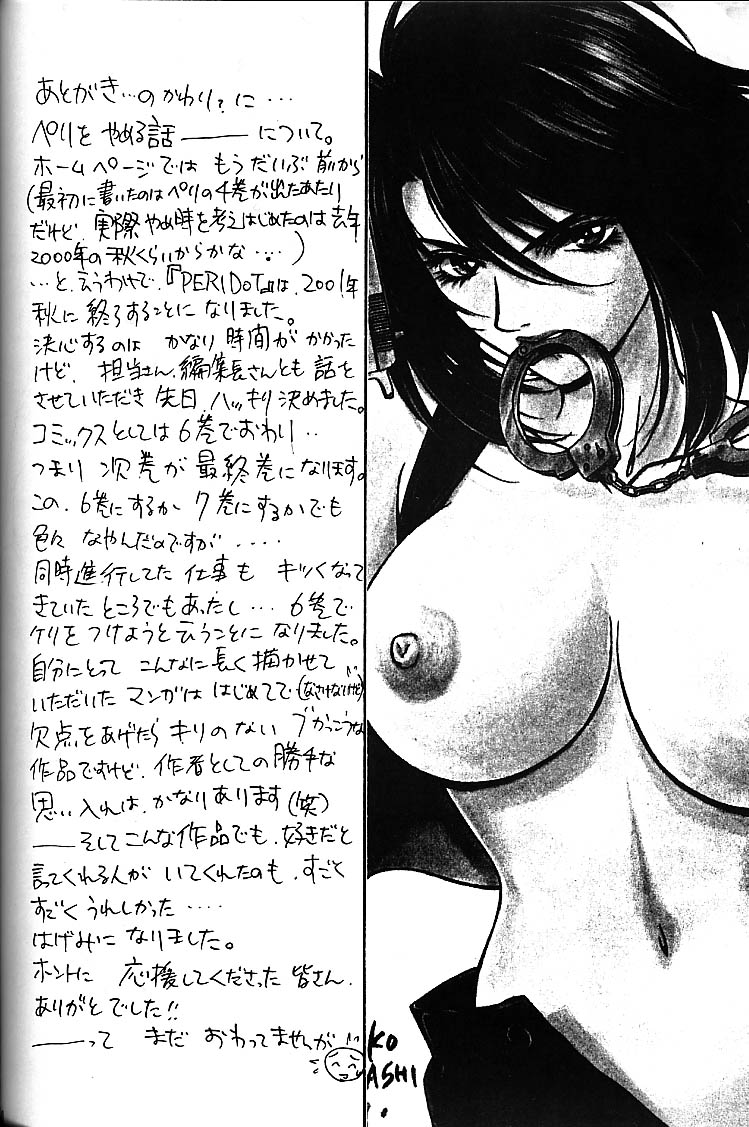 あとがき…のかわり?に…
ペリを やめる話 ―― について。
ホームページでは もうだいぶ前から
(最初に書いたのはペリの4巻が出たあたり
だけど、実際やめ時を考えはじめたのは去年
2000年の秋くらいからかな…)
…と、言うわけで、『PERIDoT』は、2001年
秋に終了することになりました。
決心するのは かなり時間がかかった
けど、担当さん、編集長さんとも話を
させていただき先日ハッキリ決めました。
コミックスとしては6巻でおわり‥
つまり 次巻が最終巻になります。
この、6巻にするか7巻にするかでも
色々 なやんだのですが‥‥
同時進行してた仕事も キツくなって
きていたところでもあったし…6巻で
ケリをつけようと言うことになりました。
自分にとって こんなに長く描かせて
いただいたマンガははじめてで(なさけないけど)
欠点をあげたらキリのない ブかっこうな
作品ですけど、作者としての勝手な
思い入れは、かなりあります(笑)
――そしてこんな作品でも、好きだと
言ってくれる人が いてくれたのも、すごく
すごくうれしかった‥‥
はげみになりました。
ホントに 応援してくださった皆さん、
ありがとでした!!
――って まだ おわってませんが
KO
ASHI